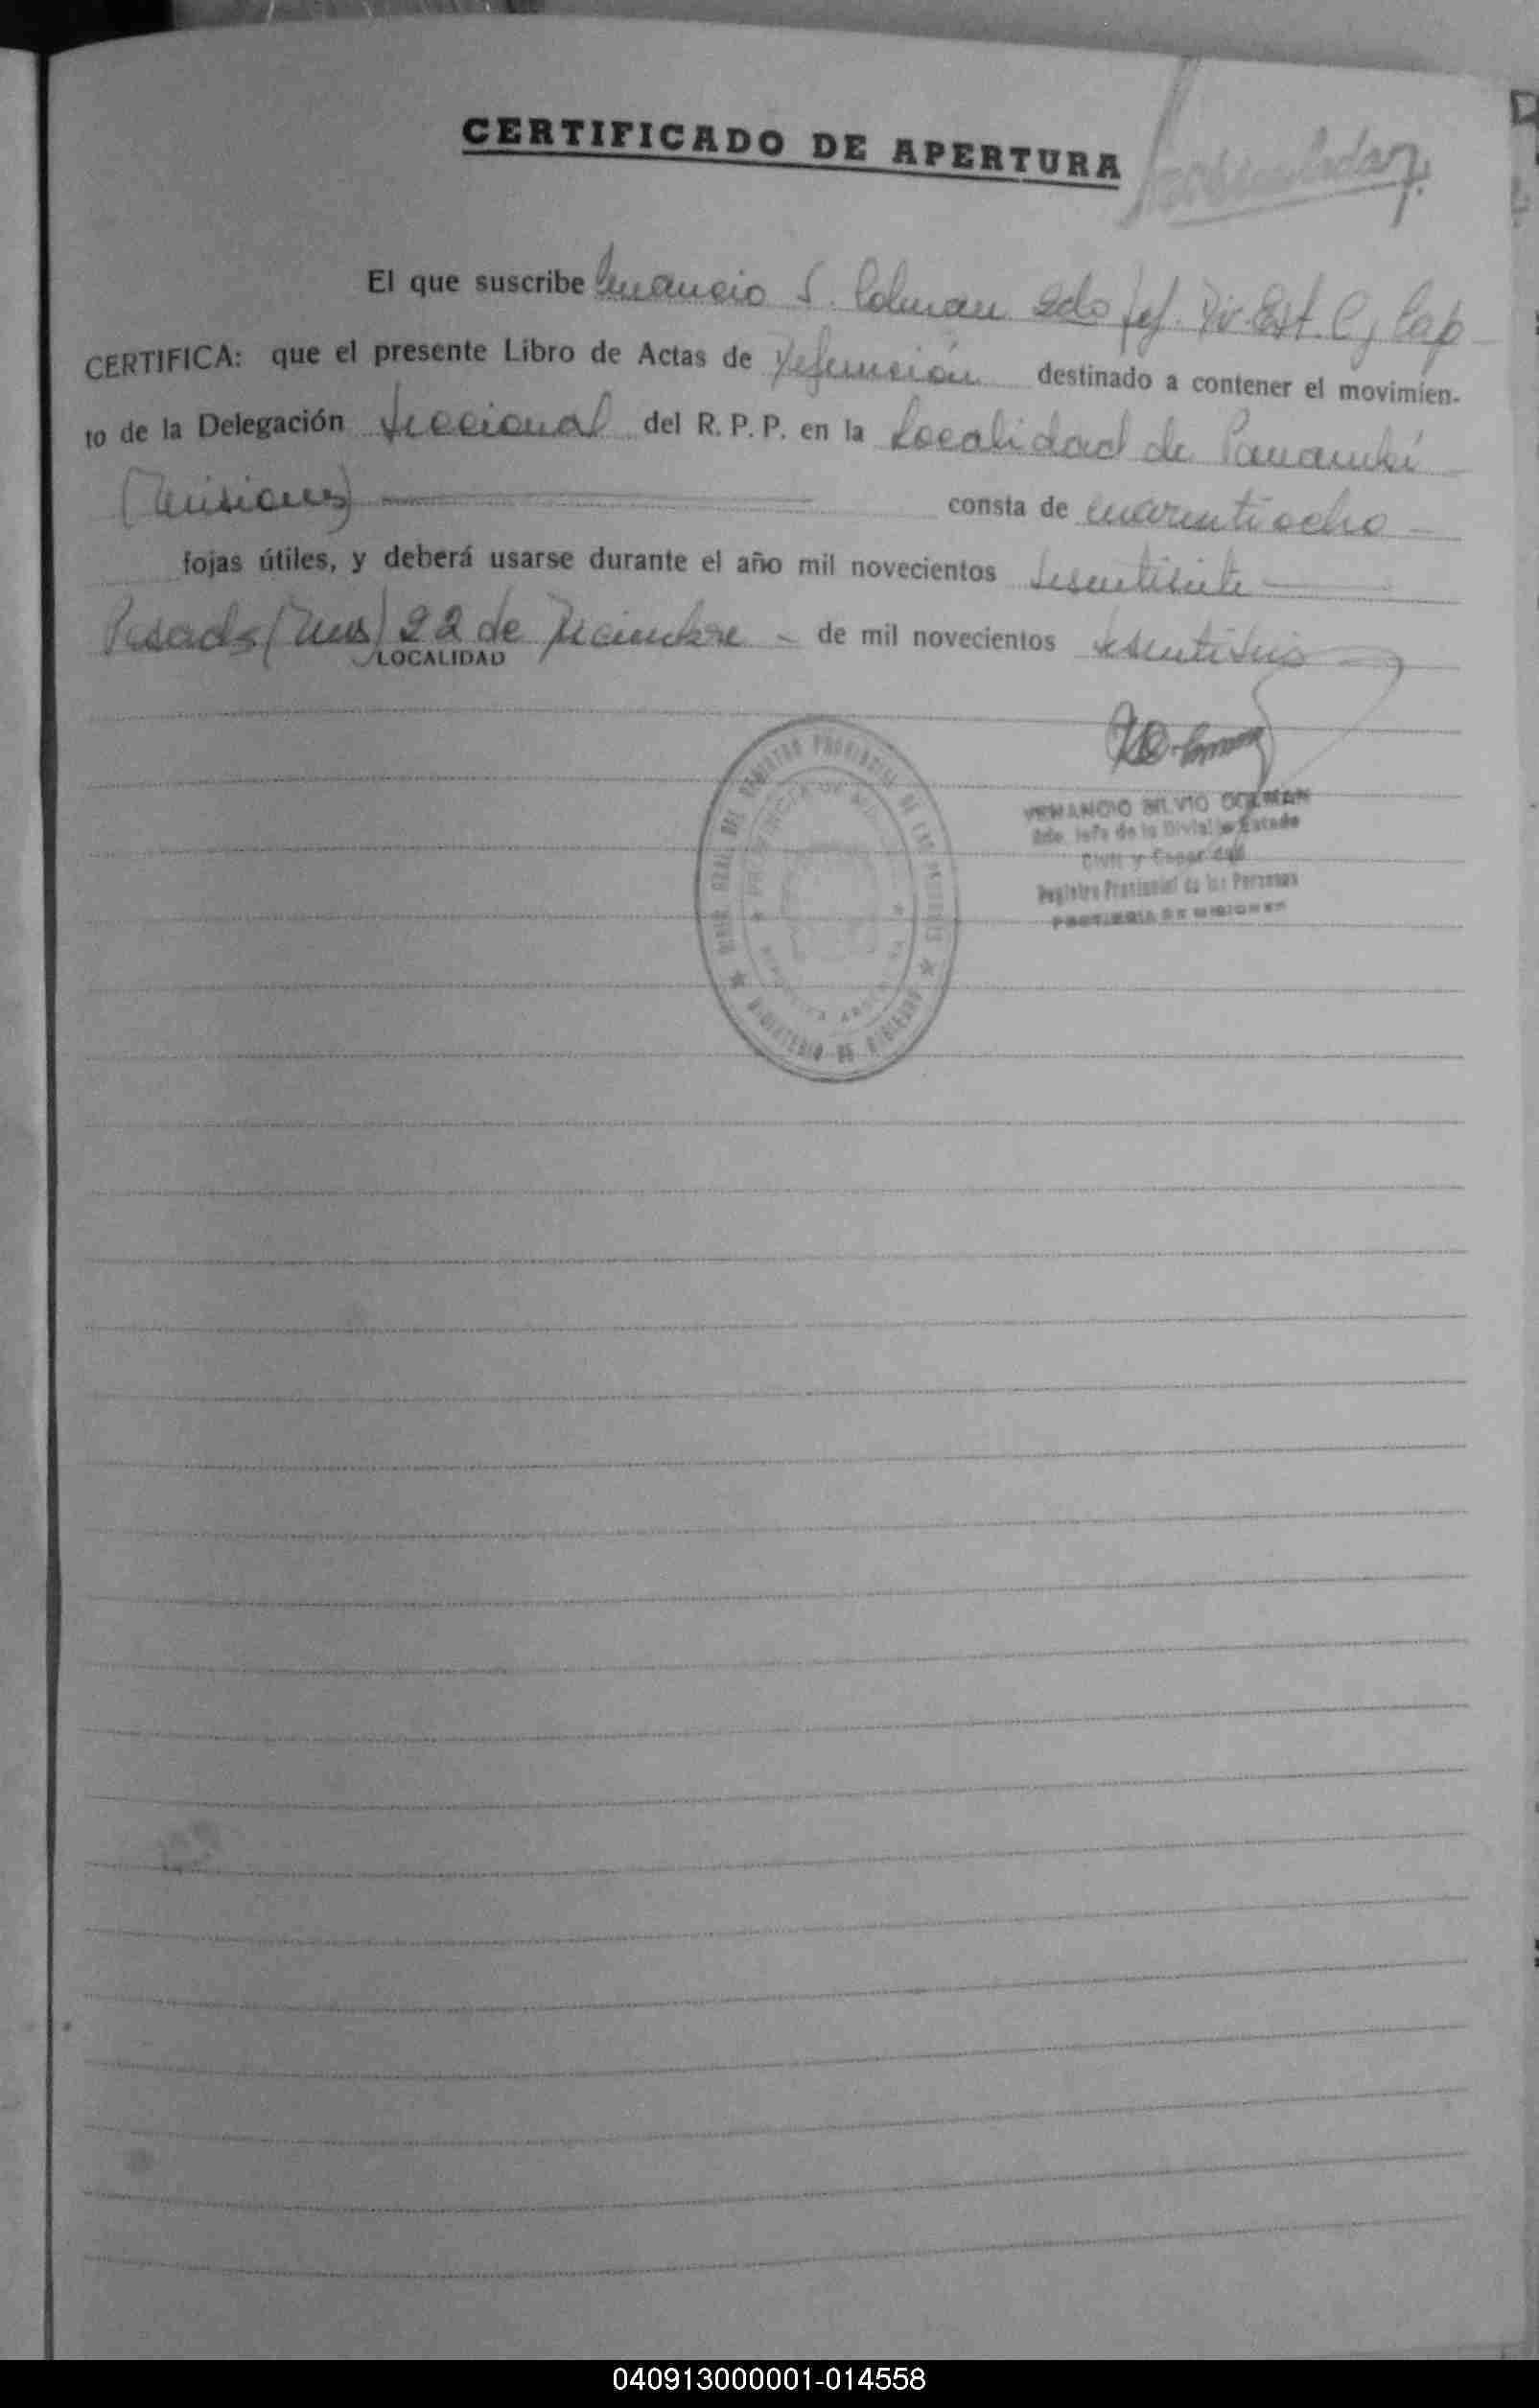 CERTIFICADO DE APERTURA
El que suscribe Venancio S. Colman 2do Jef. Div. Est. C. y Cap
CERTIFICA: que el presente Libro de Actas de Defunción destinado a contener el movimien-
to de la Delegación Seccional del R. P. P. en la Localidad de Panambí
(Misiones) consta de cuarentiocho
fojas útiles, y deberá usarse durante el año mil novecientos sesentisiete
Posadas (Mnes) 22 de Diciembre - de mil novecientos sesentiseis
LOCALIDAD
VENANCIO SILVIO COLMAN
2do. Jefe de la División Estado
Civil y Capacidad
Registro Provincial de las Personas
PROVINCIA DE MISIONES
DIREC. GRAL. DEL REGISTRO PROVINCIAL DE LAS PERSONAS
MINISTERIO DE GOBIERNO
PROVINCIA DE
REPUBLICA ARGENTINA
040913000001-014558